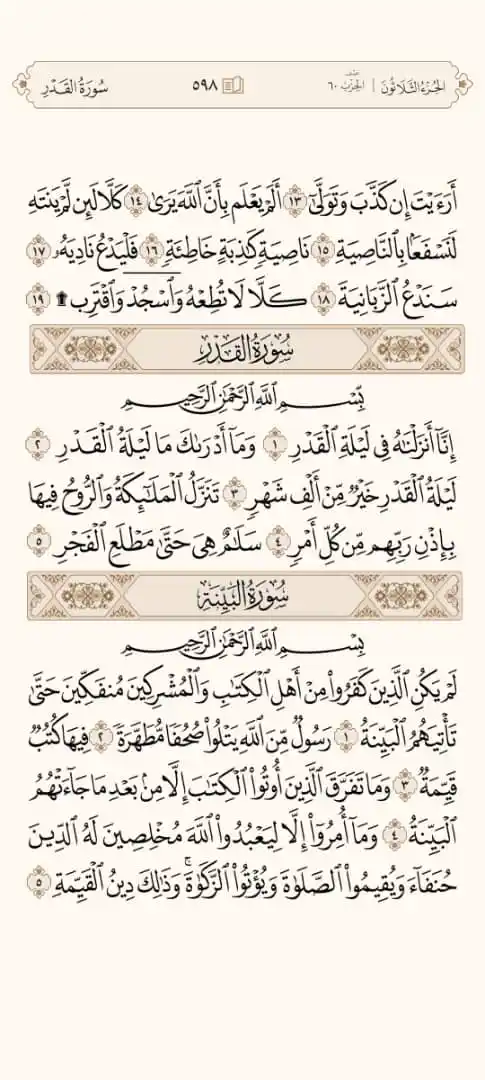 الجُزْءُ الثَّلَاثُونَ | الحِزْبُ ٦٠ ٥٩٨ سُورَةُ القَدْرِ
أَرَءَيْتَ إِن كَذَّبَ وَتَوَلَّىٰٓ ١٣ أَلَمْ يَعْلَم بِأَنَّ ٱللَّهَ يَرَىٰ ١٤ كَلَّا لَئِن لَّمْ يَنتَهِ
لَنَسْفَعًۢا بِٱلنَّاصِيَةِ ١٥ نَاصِيَةٍ كَٰذِبَةٍ خَاطِئَةٍ ١٦ فَلْيَدْعُ نَادِيَهُۥ ١٧
سَنَدْعُ ٱلزَّبَانِيَةَ ١٨ كَلَّا لَا تُطِعْهُ وَٱسْجُدْ وَٱقْتَرِب ۩ ١٩
سُورَةُ القَدْرِ
بِسْمِ ٱللَّهِ ٱلرَّحْمَٰنِ ٱلرَّحِيمِ
إِنَّآ أَنزَلْنَٰهُ فِى لَيْلَةِ ٱلْقَدْرِ ١ وَمَآ أَدْرَىٰكَ مَا لَيْلَةُ ٱلْقَدْرِ ٢
لَيْلَةُ ٱلْقَدْرِ خَيْرٌ مِّنْ أَلْفِ شَهْرٍ ٣ تَنَزَّلُ ٱلْمَلَٰٓئِكَةُ وَٱلرُّوحُ فِيهَا
بِإِذْنِ رَبِّهِم مِّن كُلِّ أَمْرٍ ٤ سَلَٰمٌ هِىَ حَتَّىٰ مَطْلَعِ ٱلْفَجْرِ ٥
سُورَةُ البَيِّنَةِ
بِسْمِ ٱللَّهِ ٱلرَّحْمَٰنِ ٱلرَّحِيمِ
لَمْ يَكُنِ ٱلَّذِينَ كَفَرُوا۟ مِنْ أَهْلِ ٱلْكِتَٰبِ وَٱلْمُشْرِكِينَ مُنفَكِّينَ حَتَّىٰ
تَأْتِيَهُمُ ٱلْبَيِّنَةُ ١ رَسُولٌ مِّنَ ٱللَّهِ يَتْلُوا۟ صُحُفًا مُّطَهَّرَةً ٢ فِيهَا كُتُبٌ
قَيِّمَةٌ ٣ وَمَا تَفَرَّقَ ٱلَّذِينَ أُوتُوا۟ ٱلْكِتَٰبَ إِلَّا مِنۢ بَعْدِ مَا جَآءَتْهُمُ
ٱلْبَيِّنَةُ ٤ وَمَآ أُمِرُوٓا۟ إِلَّا لِيَعْبُدُوا۟ ٱللَّهَ مُخْلِصِينَ لَهُ ٱلدِّينَ
حُنَفَآءَ وَيُقِيمُوا۟ ٱلصَّلَوٰةَ وَيُؤْتُوا۟ ٱلزَّكَوٰةَ ۚ وَذَٰلِكَ دِينُ ٱلْقَيِّمَةِ ٥